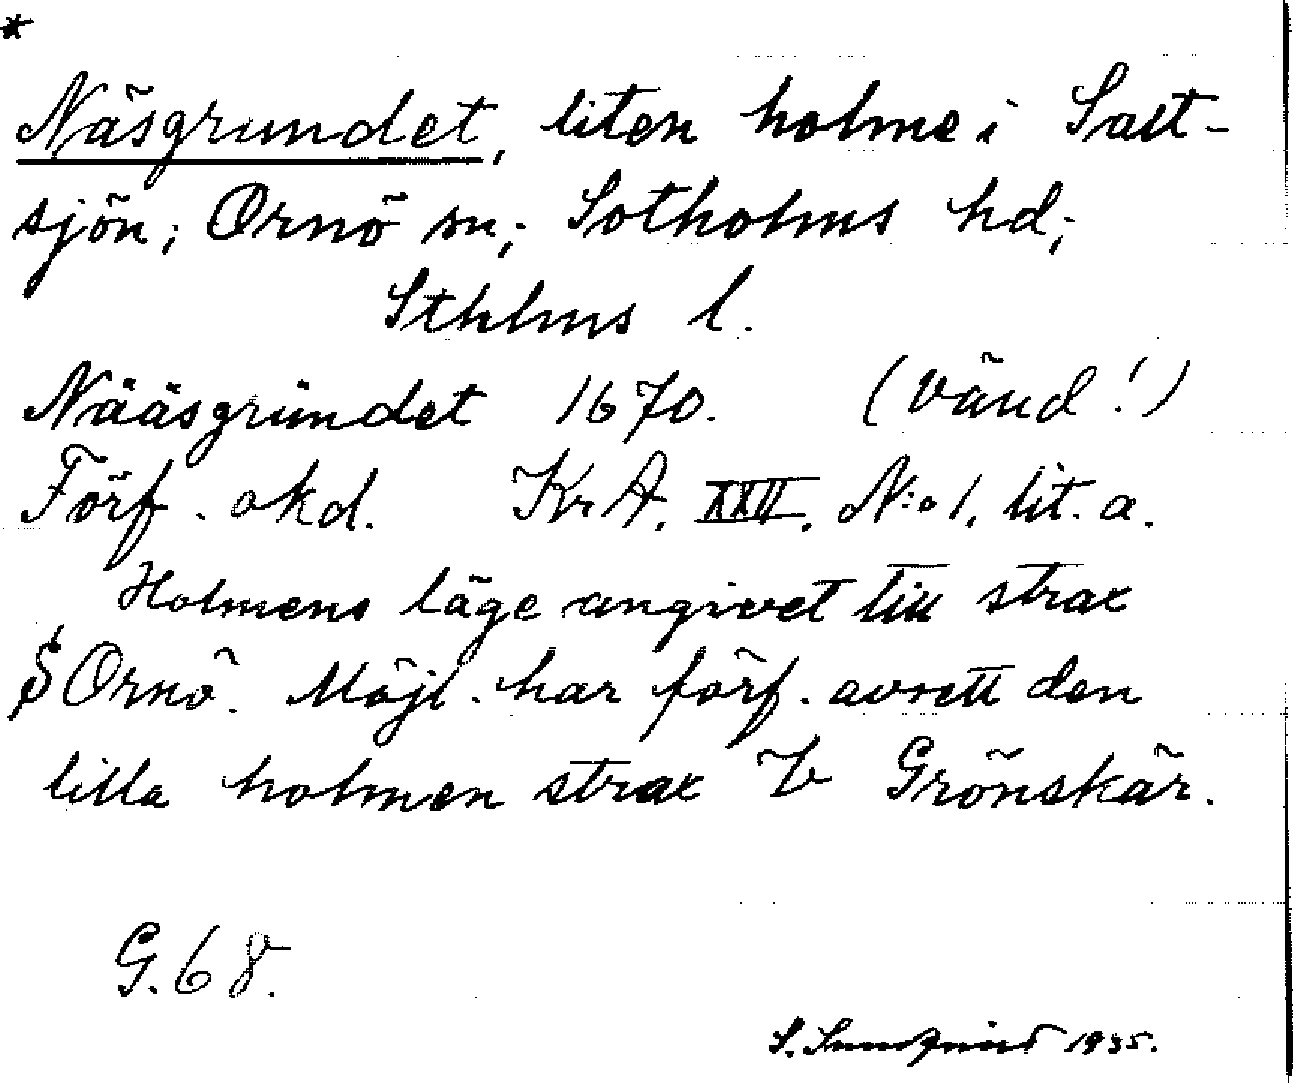 *
Näsgrundet, liten holme i Salt-
sjön; Ornö sn; Sotholms hd;
Sthlms l.
Nääsgrundet 1670. (Vänd!)
Förf. okd. KrA. XXII. N:o 1. lit. a.
Holmens läge angivet till strax
S Ornö. Möjl. har förf. avsett den
lilla holmen strax V Grönskär.
G. 68.
S. 1935.